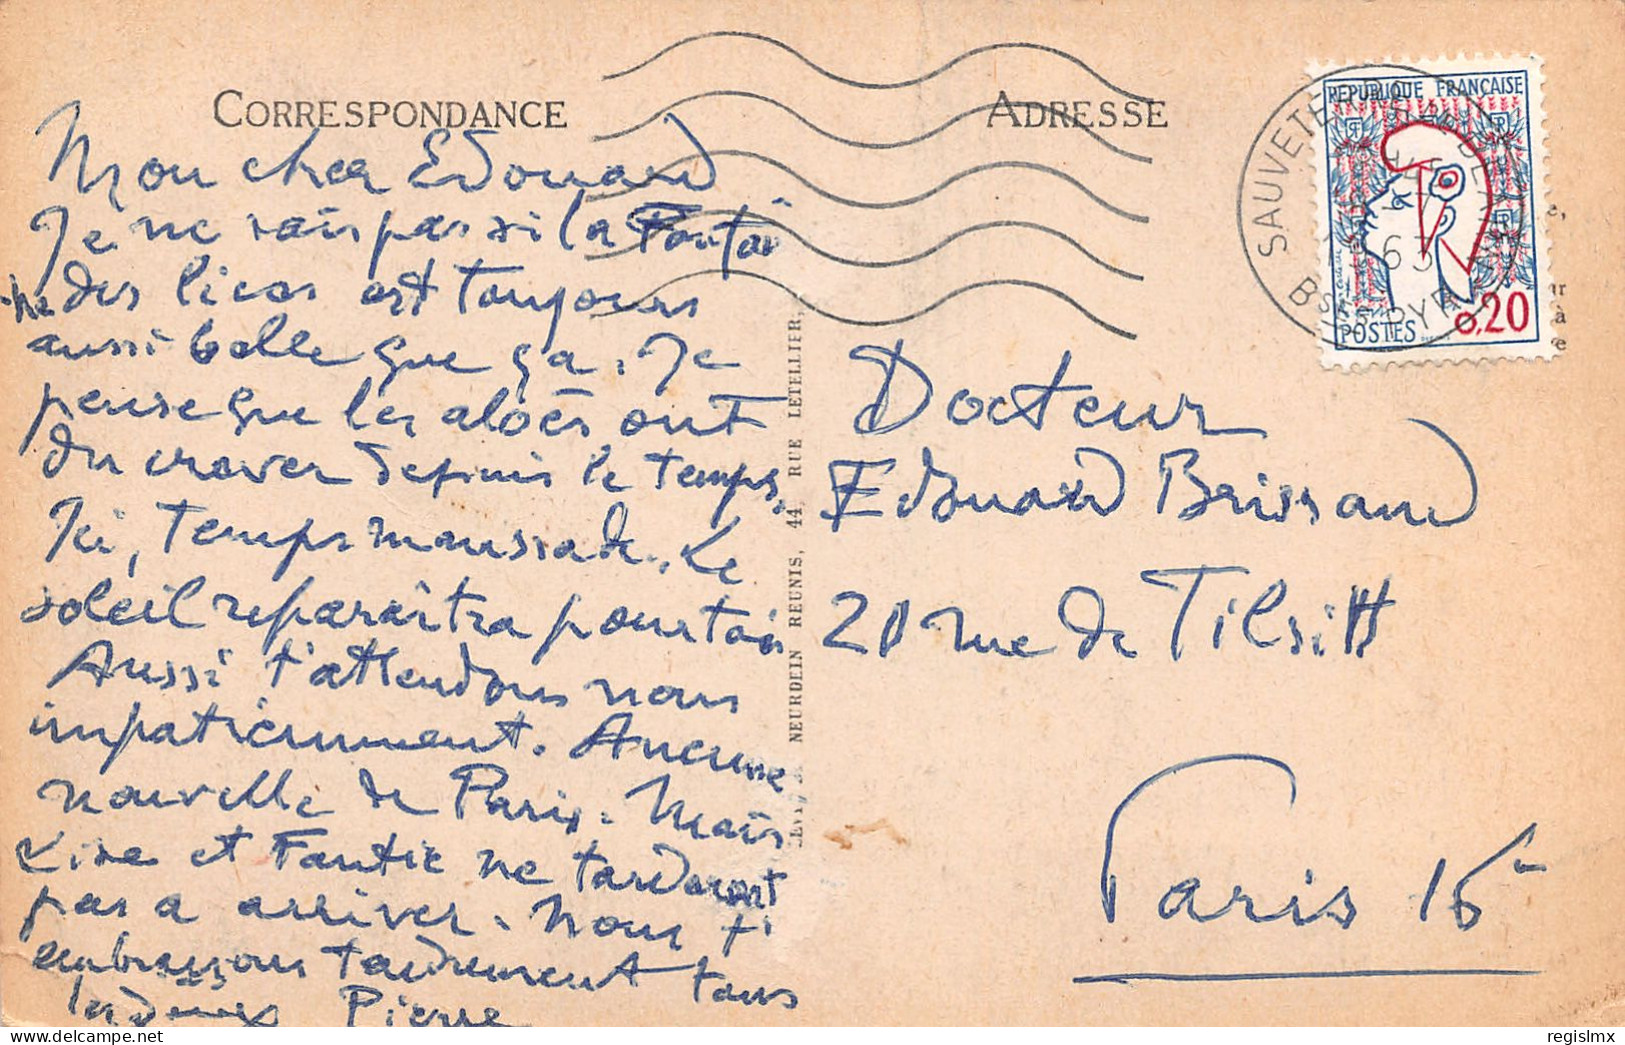 CORRESPONDANCE
Mon cher Edouard
Je ne sais pas si la Fontai
ne des lices est toujours
aussi belle que ça. Je
pense que les aloès ont
du crever depuis le temps.
Ici, temps maussade. Le
soleil reparaîtra pourtant
Aussi t'attendons nous
impatiemment. Aucune
nouvelle de Paris. Mais
Lise et Fantic ne tarderont
pas a arriver. Nous t'
embrassons tendrement tous
les deux Pierre
NEURDEIN REUNIS, 44 RUE LETELLIER,
ADRESSE
REPUBLIQUE FRANÇAISE
POSTES
0,20
SAUVETERRE DE BEARN
1963
BSSES PYR
Docteur
Edouard Brissaud
20 rue de Tilsitt
Paris 16e
regislmx